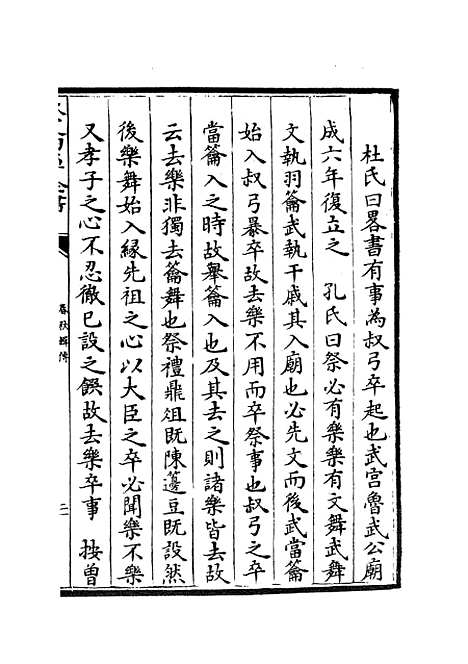 杜氏曰畧書有事為叔弓卒起也武宫魯武公廟
成六年復立之　孔氏曰祭必有樂樂有文舞武舞
文執羽籥武執干戚其入廟也必先文而後武當籥
始入叔弓暴卒故去樂不用而卒祭事也叔弓之卒
當籥入之時故舉籥入也及其去之則諸樂皆去故
云去樂非獨去籥舞也祭禮鼎俎既陳籩豆既設然
後樂舞始入緣先祖之心以大臣之卒必聞樂不樂
又孝子之心不忍徹已設之饌故去樂卒事　按曾
春秋輯傳